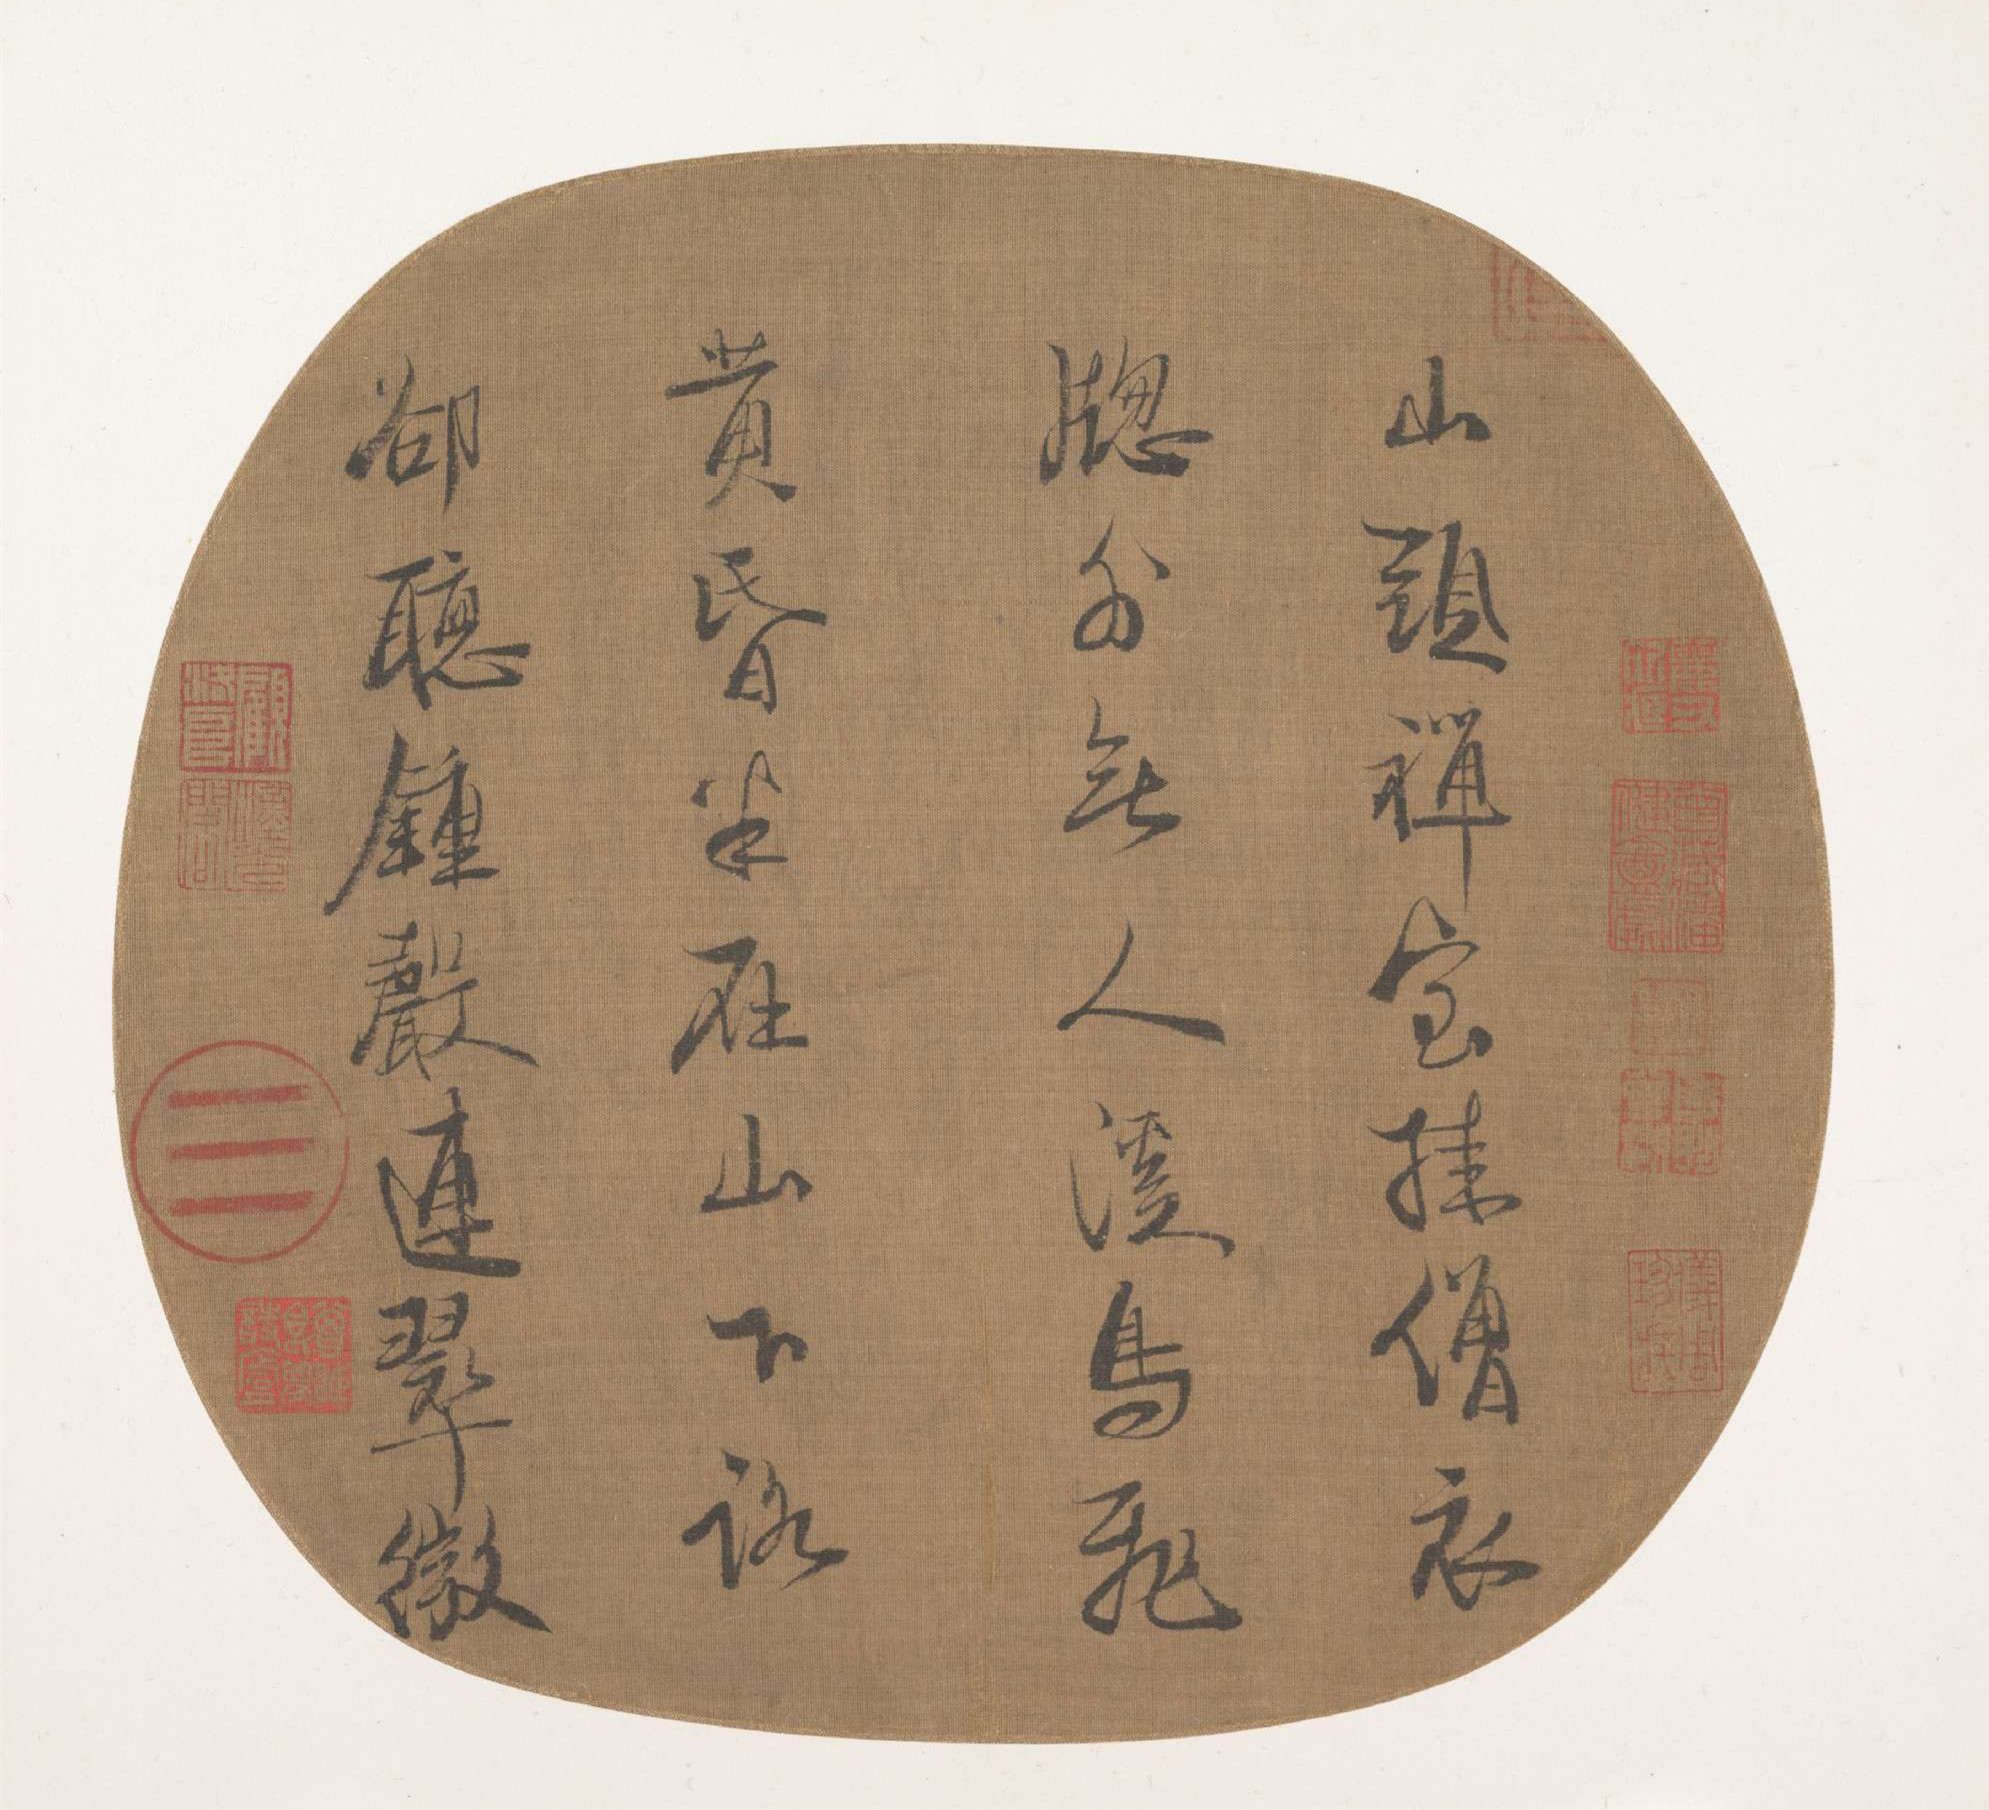 山頭禪室挂僧衣
牕外無人溪鳥飛
黄昏半在山下路
却聽鍾聲連翠微